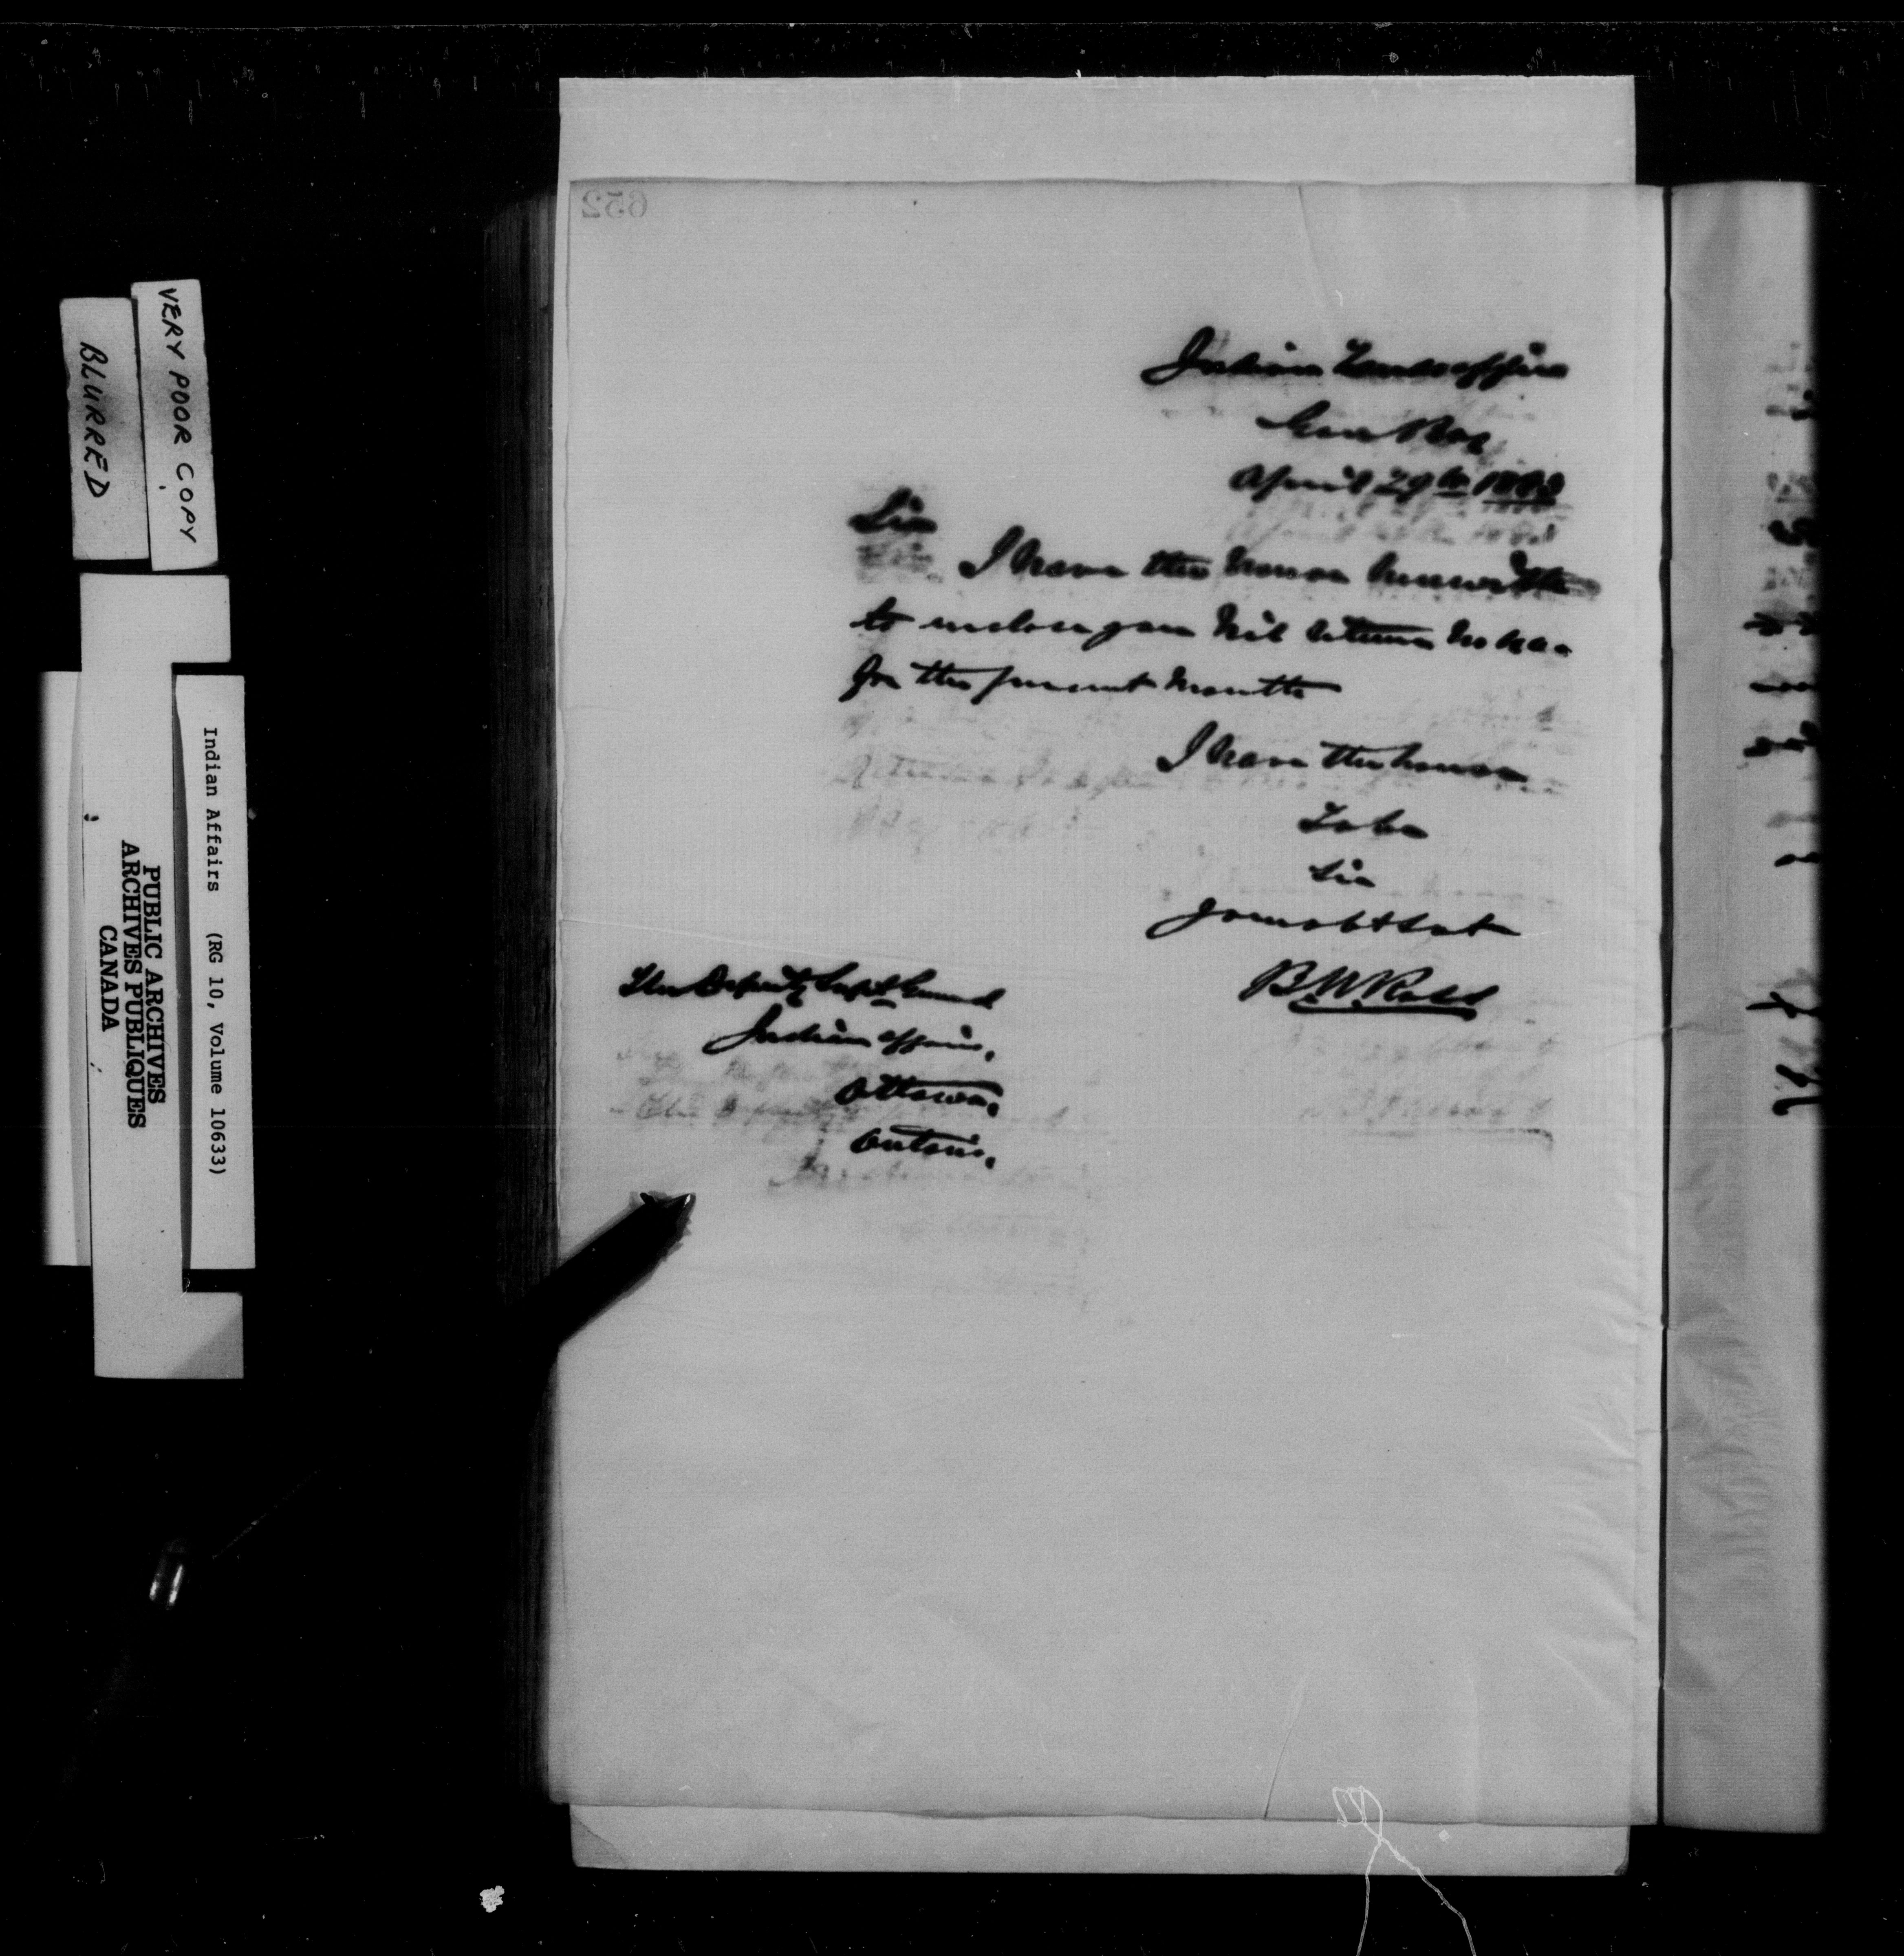 652
Indian Lands office
April 29th
Sir
I have the honor herewith
to inclose you Nil return No
for the present month
I have the honor
To be
Sir
your obt Svt
B. W. Ross
The Deputy Supt General
Indian affairs,
Ottawa,
Ontario,
VERY POOR COPY
BLURRED
Indian Affairs (RG 10, Volume 10633)
PUBLIC ARCHIVES
ARCHIVES PUBLIQUES
CANADA